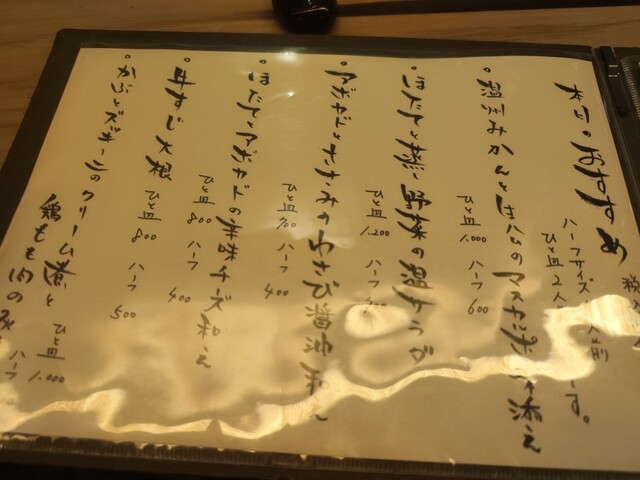 本日のおすすめ
税
ハーフサイズ 人前
ひと皿 2人 す。
・温州みかんと生ハムのマスカルポーネ添え
ひと皿 1,000 ハーフ 600
・ほたてと蒸し野菜の温サラダ
ひと皿 1,200
・アボカドとささみのわさび醤油和え
ひと皿 700 ハーフ 400
・ほたてとアボカドの チーズ和え
ひと皿 800 ハーフ 400
・牛すじ大根
ひと皿 800 ハーフ 500
・かぶとズッキーニのクリーム煮と
鶏もも肉の
ひと皿 1,000
ハーフ